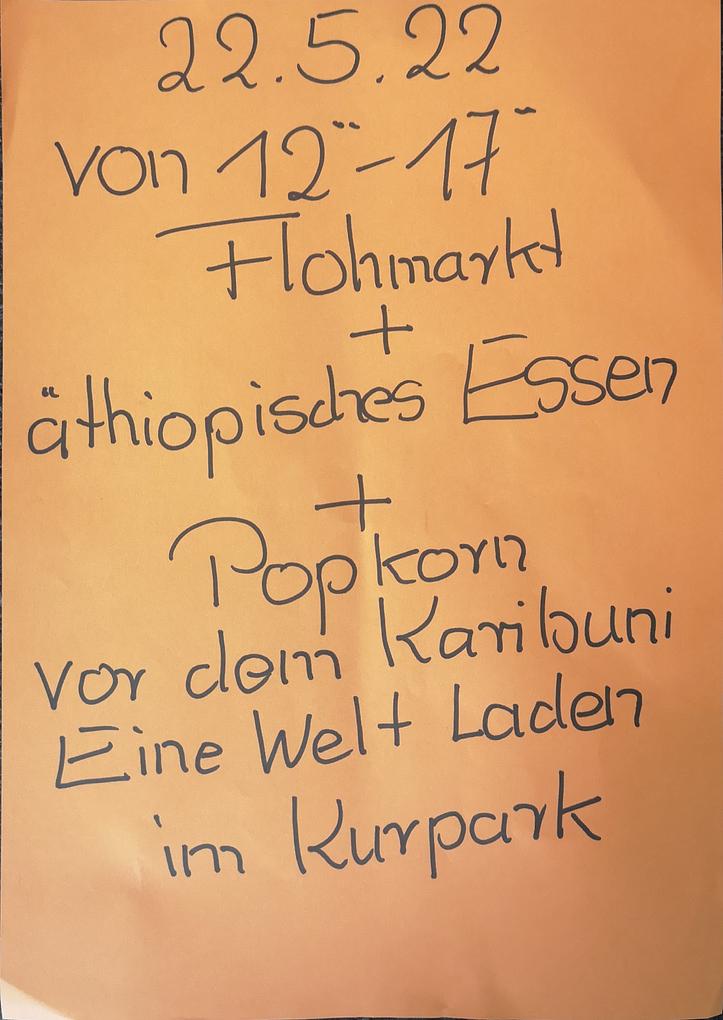 22.5.22
von 12⁰⁰-17⁰⁰
Flohmarkt
+
äthiopisches Essen
+
Popkorn
vor dem Karibuni
Eine Welt Laden
im Kurpark